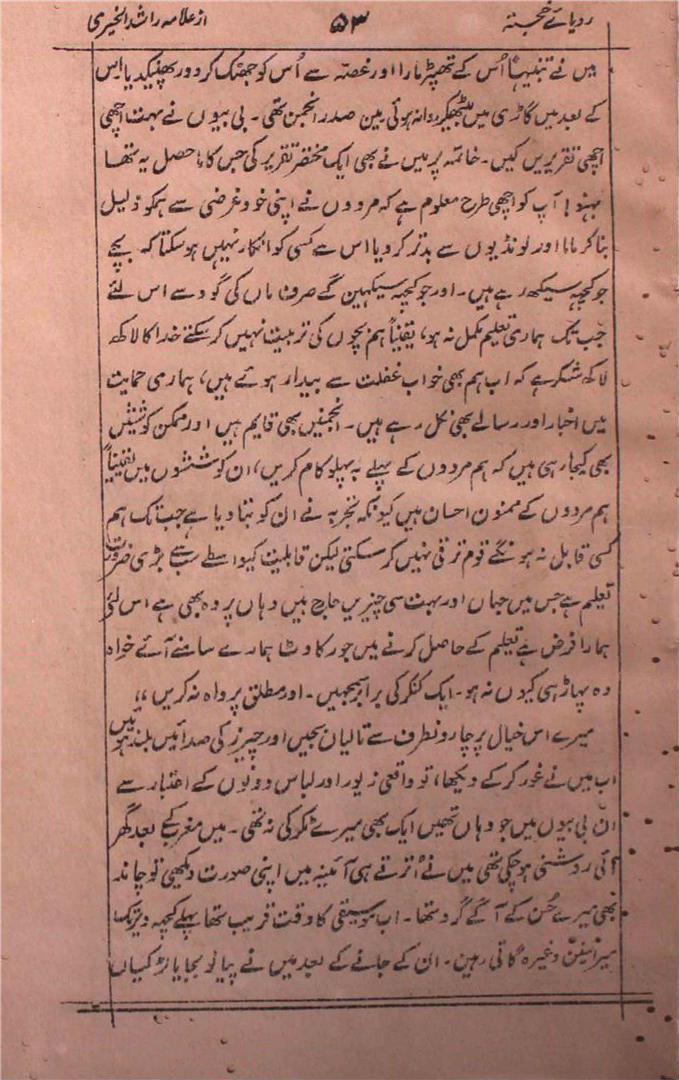 رویائے خجستہ ۵۳ از علامہ راشد الخیری
میں نے تنبیہاً اُس کے تھپڑ مارا اور غصہ سے اُس کو جھٹک کر دور پھینکدیا اس
کے بعد میں گاڑی میں بیٹھکر روانہ ہوئی مین صدر انجمن تھی۔ بی بیوں نے بہت اچھی
اچھی تقریریں کیں۔ خاتمہ پر میں نے بھی ایک مختصر تقریر کی جس کا ماحصل یہ تھا
بہنو! آپ کو اچھی طرح معلوم ہے کہ مردوں نے اپنی خود غرضی سے ہمکو ذلیل
بنا کر مانا اور لونڈیوں سے بدتر کر دیا اس سے کسی کو انکار نہیں ہو سکتا کہ بچے
جو کچھ سیکھ رہے ہیں۔ اور جو کچھ سیکھین گے صرف ماں کی گود سے اس لئے
جب تک ہماری تعلیم مکمل نہ ہو، یقیناً ہم بچوں کی تربیت نہیں کر سکتے خدا کا لاکھ
لاکھ شکر ہے کہ اب ہم بھی خواب غفلت سے بیدار ہوئے ہیں، ہماری حمایت
میں اخبار اور رسالے بھی نکل رہے ہیں۔ انجمنیں بھی قایم ہیں اور ممکن کوششیں
بھی کیجا رہی ہیں کہ ہم مردوں کے پہلے بہ پہلو کام کریں، ان کوششوں میں یقیناً
ہم مردوں کے ممنون احسان ہیں کیونکہ تجربہ نے ان کو بتا دیا ہے جب تک ہم
کسی قابل نہ ہونگے قوم ترقی نہیں کر سکتی لیکن قابلیت کیواسطے سب سے بڑی ضرورت
تعلیم ہے جس میں جہاں اور بہت سی چیزیں حارج ہیں وہاں پردہ بھی ہے اس لئے
ہمارا فرض ہے تعلیم کے حاصل کرنے میں جو رکاوٹ ہمارے سامنے آئے خواہ
وہ پہاڑ ہی کیوں نہ ہو۔ ایک کنکر کی برابر سمجہیں۔ اور مطلق پرواہ نہ کریں ،،
میرے اس خیال پر چارونطرف سے تالیان بجیں اور چیرز کی صدائیں بلند ہوئیں
اب میں نے غور کر کے دیکھا، تو واقعی زیور اور لباس دونوں کے اعتبار سے
ان بی بیوں میں جو وہاں تھیں ایک بھی میرے ٹکر کی نہ تھی۔ میں مغرب کے بعد گھر
آئی روشنی ہو چکی تھی میں نے اُترتے ہی آئینہ میں اپنی صورت دیکھی تو چاند
بھی میرے حُسن کے آگے گرد تھا۔ اب موسیقی کا وقت قریب تھا پہلے کچھ دیر تک
میراثنین وغیرہ گاتی رہین۔ ان کے جانے کے بعد میں نے پیانو بجایا لڑکیاں